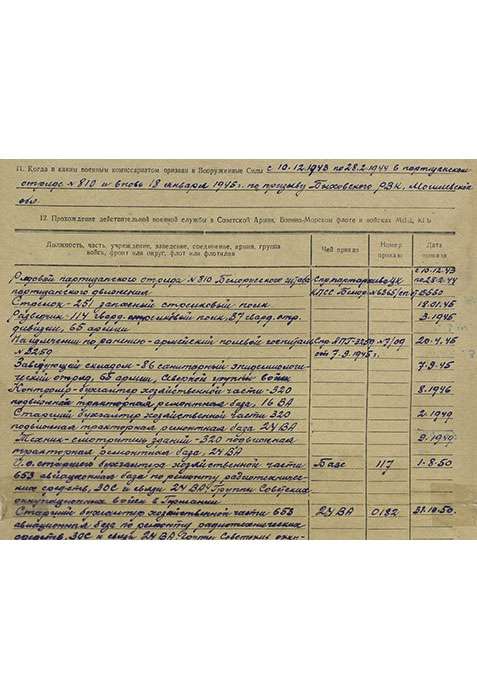 11. Когда и каким военным комиссариатом призван в Вооруженные Силы с 10.12.1943 по 28.2.1944 в партизанском
отряде №810 и вновь 18 января 1945 г. по призыву Быховского РВК, Могилевской
обл.
12. Прохождение действительной военной службы в Советской Армии, Военно-Морском флоте и войсках МВД, КГБ
Должность, часть, учреждение, заведение, соединение, армия, группа войск, фронт или округ, флот или флотилия
Чей приказ
Номер приказа
Дата приказа
Рядовой партизанского отряда №810 Белорусского штаба
партизанского движения
Спр. партархива ЦК
КПСС Белор.
с 10.12.43
по 28.2.44
Стрелок - 251 запасный стрелковый полк
18.01.45
Разведчик - 114 гвард. стрелковый полк, 37 гвард. стр.
дивизии, 65 армии
3.1945
На излечении по ранению - армейский полевой госпиталь
№3250
от 7.9.1945 г.
20.4.45
Заведующий складом - 86 санитарный эпидемиологи-
ческий отряд, 65 армии, Северной группы войск
7.9.45
Контролер-бухгалтер хозяйственной части - 320
подвижная тракторная ремонтная база, 16 ВА
8.1946
Старший бухгалтер хозяйственной части - 320
подвижная тракторная ремонтная база 24 ВА
2.1949
Техник-смотритель зданий - 320 подвижная
тракторная ремонтная база, 24 ВА
9.1949
И.о. старшего бухгалтера хозяйственной части
653 авиационная база по ремонту радиотехниче-
ских средств, ЗОС и связи 24 ВА Группы Советских
оккупационных войск в Германии
Базе
117
1.8.50
Старший бухгалтер хозяйственной части 653
авиационная база по ремонту радиотехнических
средств, ЗОС и связи 24 ВА Группы Советских окку-
24 ВА
0182
31.10.50